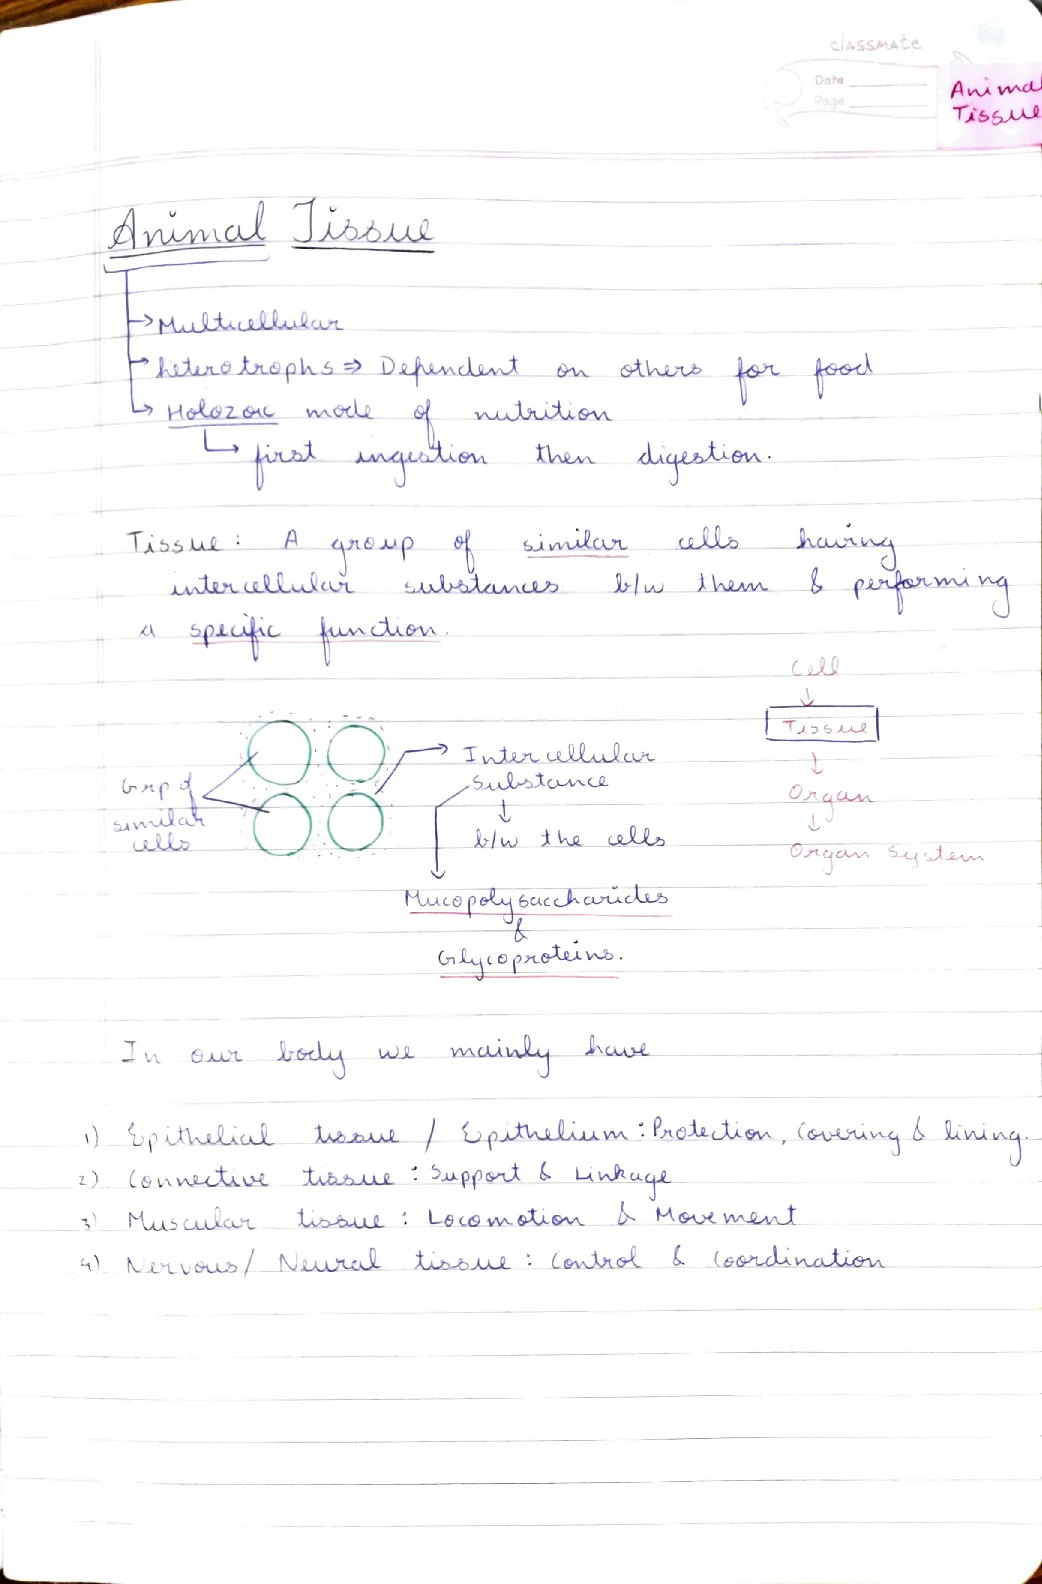 classmate
Date
Page
Animal
Tissue
Animal Tissue
→ Multicellular
→ heterotrophs ⇒ Dependent on others for food
→ Holozoic mode of nutrition
→ first ingestion then digestion.
Tissue : A group of similar cells having
intercellular substances b/w them & performing
a specific function.
Grp of
similar
cells
→ Intercellular
Substance
↓
b/w the cells
Mucopolysaccharides
&
Glycoproteins.
Cell
↓
Tissue
↓
Organ
↓
Organ System
In our body we mainly have
1) Epithelial tissue / Epithelium : Protection, Covering & lining.
2) Connective tissue : Support & Linkage
3) Muscular tissue : Locomotion & Movement
4) Nervous/ Neural tissue : Control & Coordination